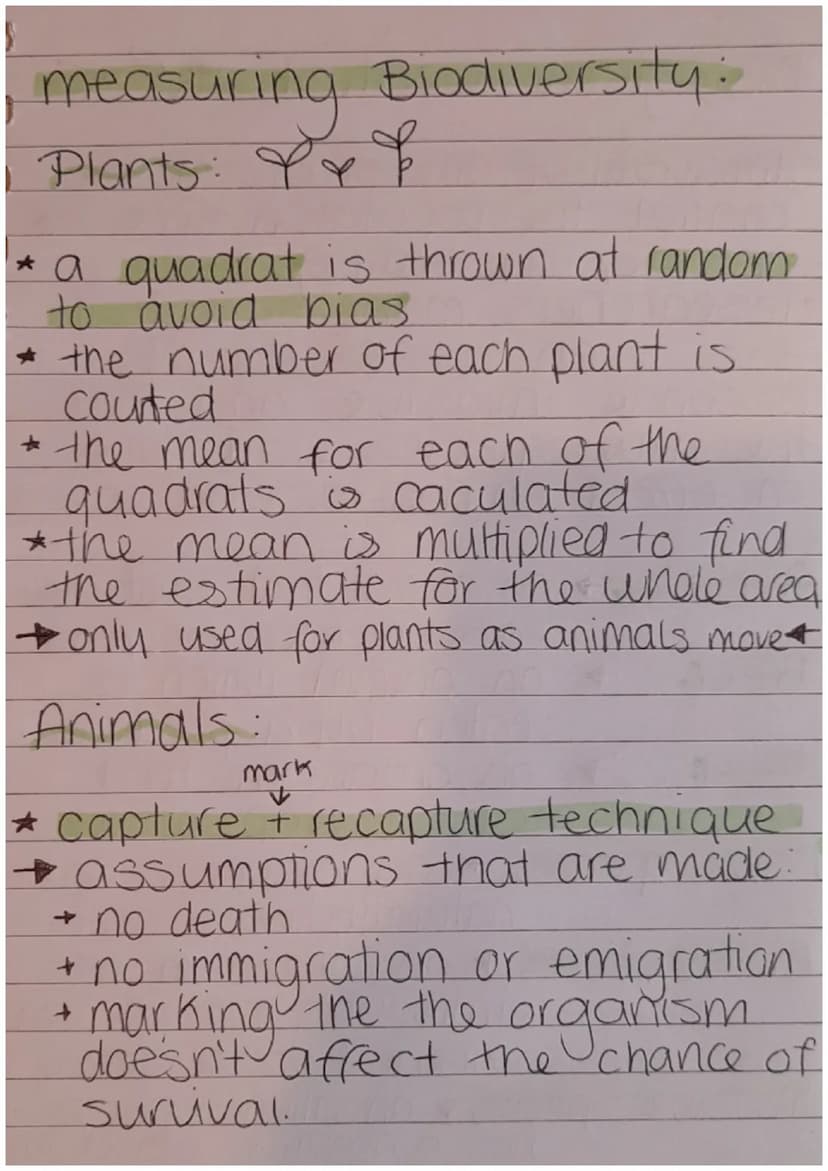 measuring Biodiversity:
Plants:
* a quadrat is thrown at random
to avoid bias
* the number of each plant is
counted
* the mean for each of the
quadrats is caculated
* the mean is multiplied to find
the estimate for the whole area
→ only used for plants as animals move ←
Animals:
mark
↓
* capture + recapture technique
→ assumptions that are made:
+ no death
+ no immigration or emigration
+ marking the the organism
doesn't affect the chance of
survival.